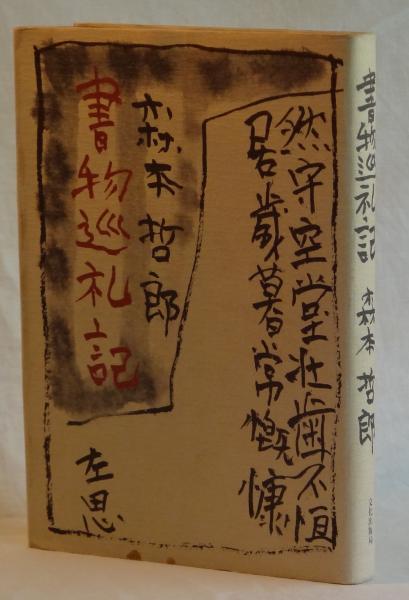 然守空堂壮歯不恒
居歳暮常慨慷
森本哲郎
書物巡礼記
左思
書物巡礼記 森本哲郎
文化出版局